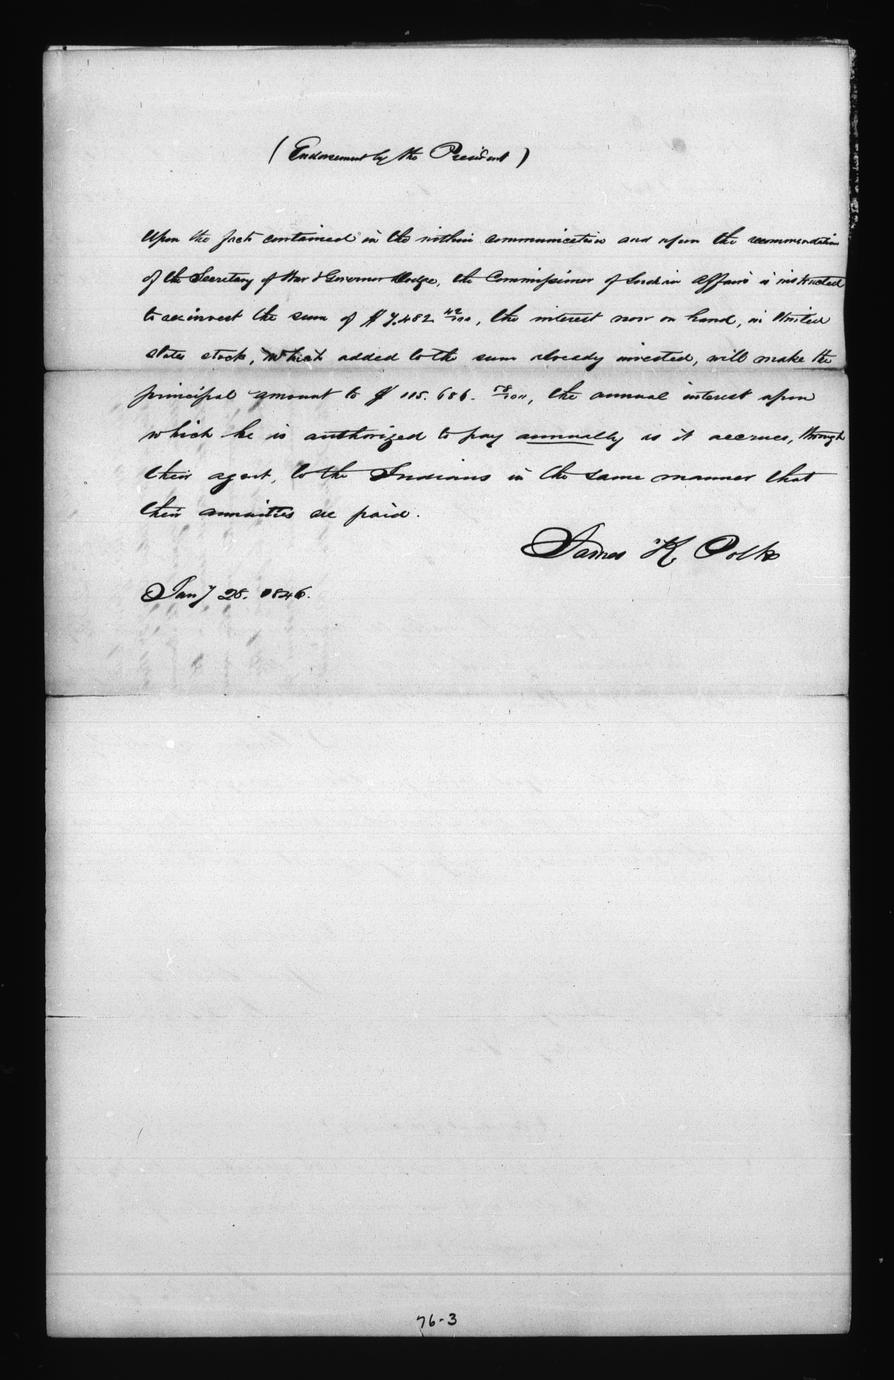 (Endorsement by the President)
Upon the facts contained in the within communication and upon the recommendation
of the Secretary of War & Governor Dodge, the Commissioner of Indian Affairs is instructed
to reinvest the sum of $7.482 42/100, the interest now on hand, in United
States stock, which added to the sum already invested, will make the
principal amount to $115.686. 58/100, the annual interest upon
which he is authorized to pay annually as it accrues, through
their agent, to the Indians in the same manner that
their annuities are paid.
James K Polk
Jany 28. 1846.
76-3